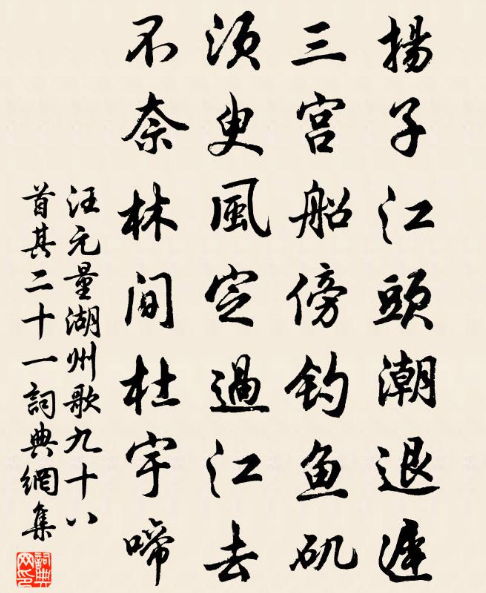 揚子江頭潮退遲
三宮船傍釣魚矶
須臾風定過江去
不奈林間杜宇啼
汪元量湖州歌九十八
首其二十一詞典網集
詞典网印